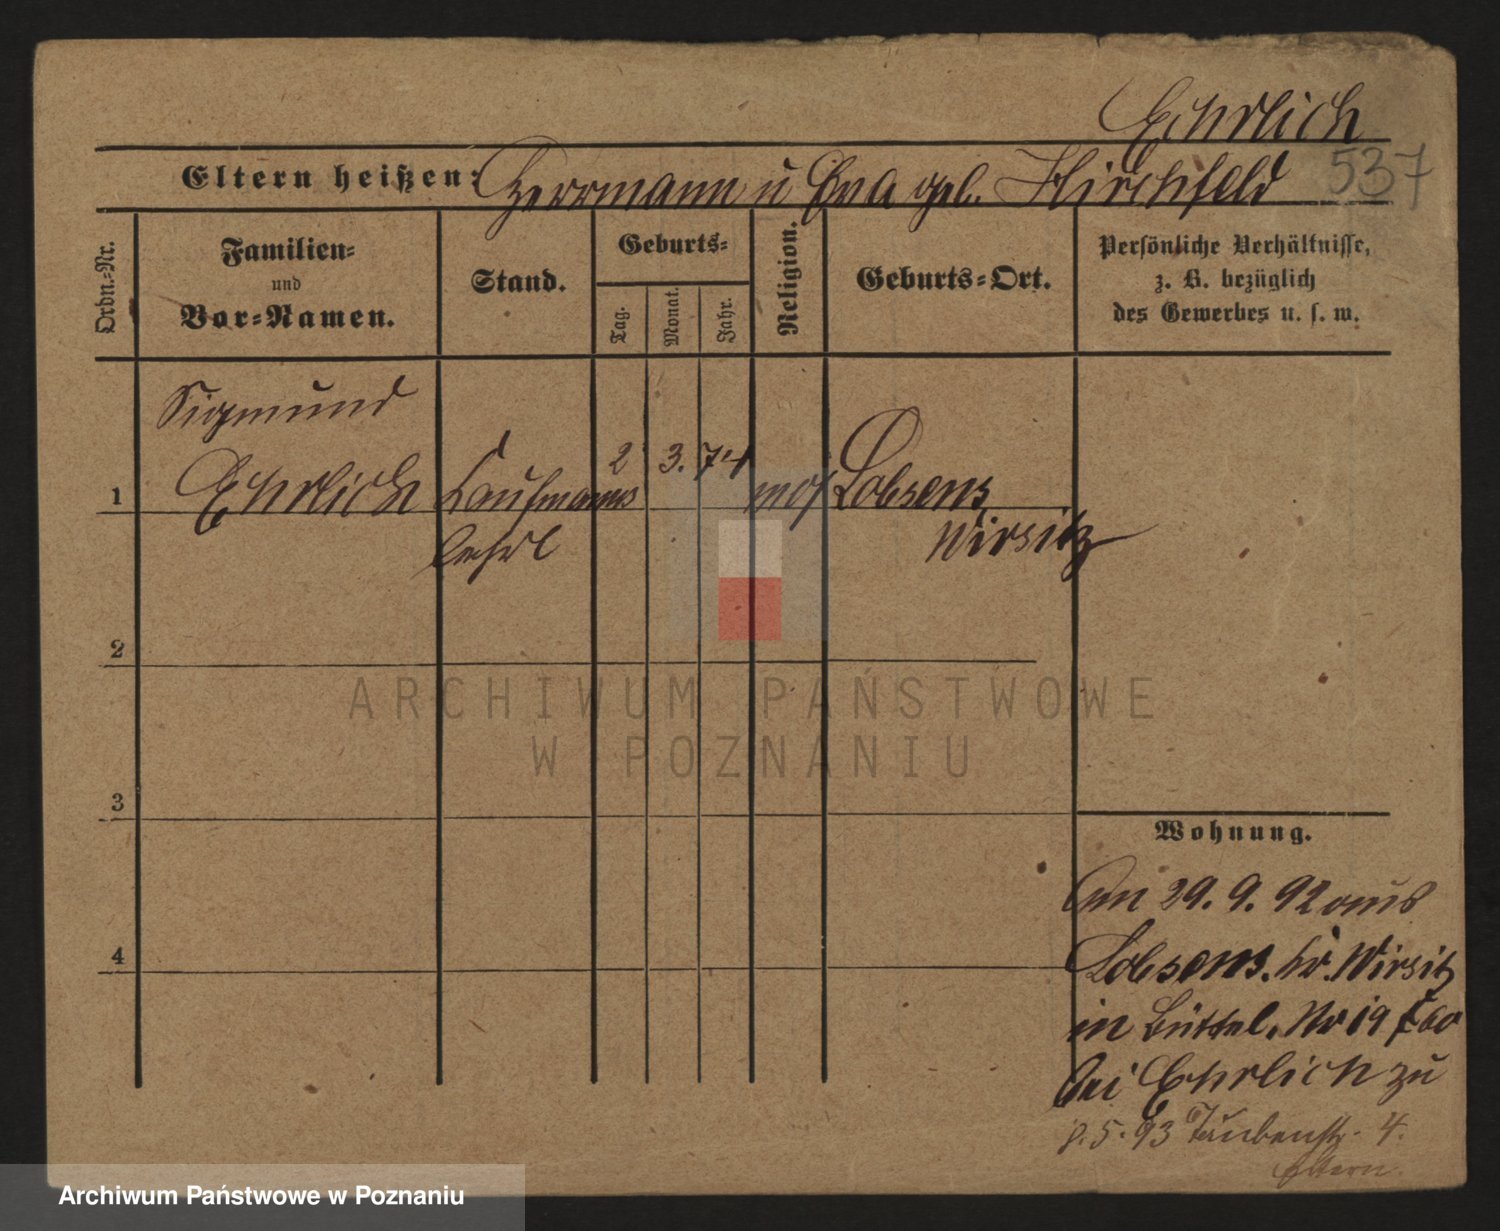 Ehrlich
Eltern heißen: Herrmann u Eva geb. Hirschfeld 537
Ordn.-Nr.
Familien-
und
Vor-Namen.
Stand.
Geburts-
Tag.
Monat.
Jahr.
Religion.
Geburts-Ort.
Persönliche Verhältnisse,
z. B. bezüglich
des Gewerbes u. s. w.
Sigmund
1 Ehrlich Kaufmanns 2 3. 74 mos Lobsens
Lehrl Wirsitz
2
ARCHIWUM PAŃSTWOWE
W POZNANIU
3
Wohnung.
Am 29. 9. 92 aus
4 Lobsens. Kr. Wirsitz
in Büttel. Nr 19
bei Ehrlich zu
5. 93 Taubenstr. 4.
Eltern.
Archiwum Państwowe w Poznaniu